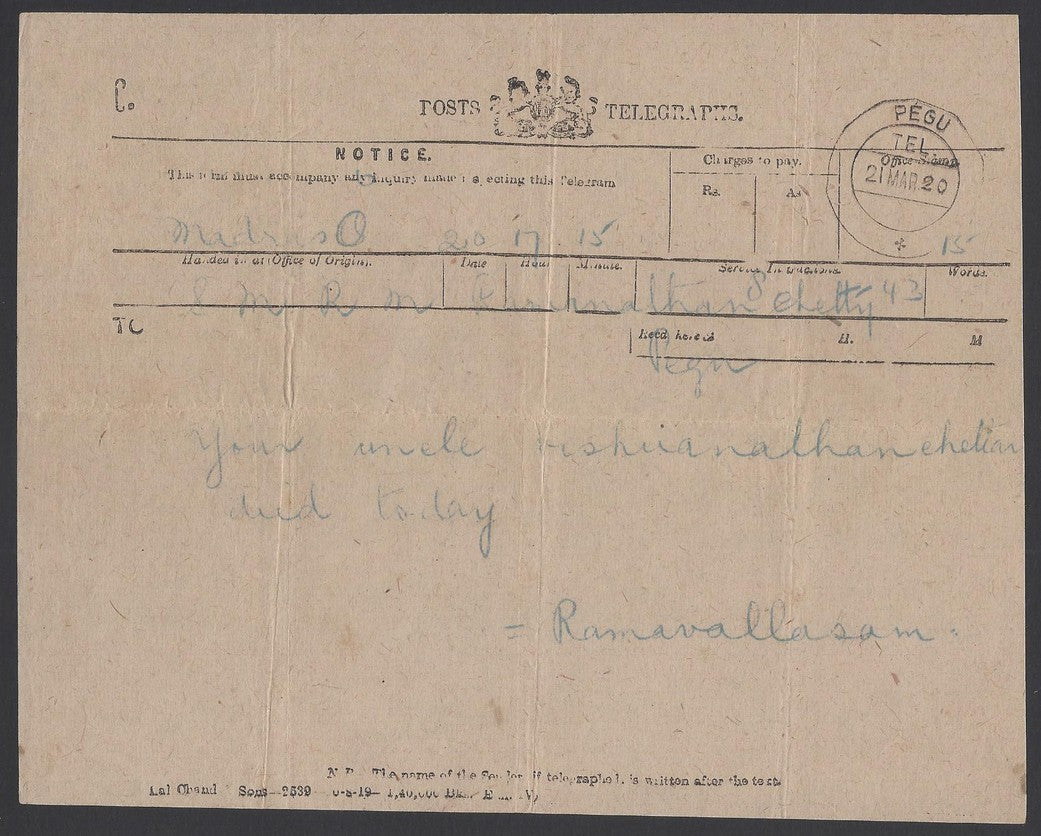 C.
POSTS TELEGRAPHS.
PEGU
TEL.
21 MAR 20
NOTICE.
This form must accompany any inquiry made respecting this Telegram
Charges to pay.
Rs. As.
Office Stamp
Madras O 20 17 15 15
Handed in at (Office of Origin). Date Hour Minute. Service Instructions. Words.
S M R M Ramanathan Chetty 43
TO
Recd. here at H. M
Pegu
Your uncle vishuanathan chettiar
died today
= Ramavallasam.
N.B. The name of the Sender, if telegraphed, is written after the text.
Lal Chand Sons—2539 8-19— 1,40,000 Bks.